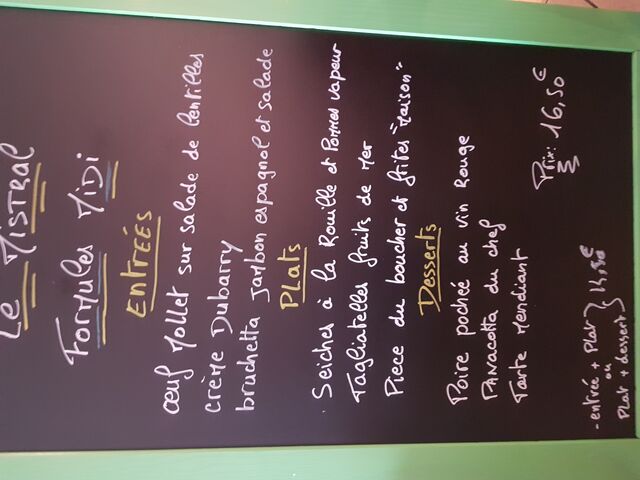 Le MISTRAL
FORMULES MIDI
ENTRÉES
œuf Mollet sur salade de lentilles
crème Dubarry
bruchetta jambon espagnol et salade
Plats
Seiches à la Rouille et Pommes vapeur
Tagliatelles fruits de Mer
Piece du boucher et frites "Maison"
Desserts
Poire pochée au vin Rouge
PANACOTTA du chef
Tarte Mendiant
Prix: 16,50€
- entrée + Plat
ou
Plat + dessert